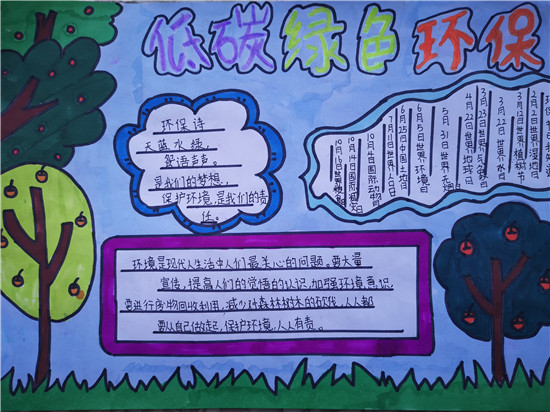 低碳绿色环保
环保诗
天蓝水绿
鸟语声声。
是我们的梦想,
保护环境,是我们的责
任。
2月2日世界湿地日
3月12日世界植树节
3月22日世界水日
3月23日世界气象日
4月22日世界地球日
5月31日世界无烟日
6月5日世界环境日
6月25日中国土地日
7月11日世界人口日
10月4日国际动物
10月14日国际
10月16日世界粮食
环境是现代人生活中人们最关心的问题。要大量
宣传,提高人们的觉悟的认识,加强环境意识,
要进行废物回收利用,减少对森林树木的砍伐,人人都
要从自己做起,保护环境,人人有责。